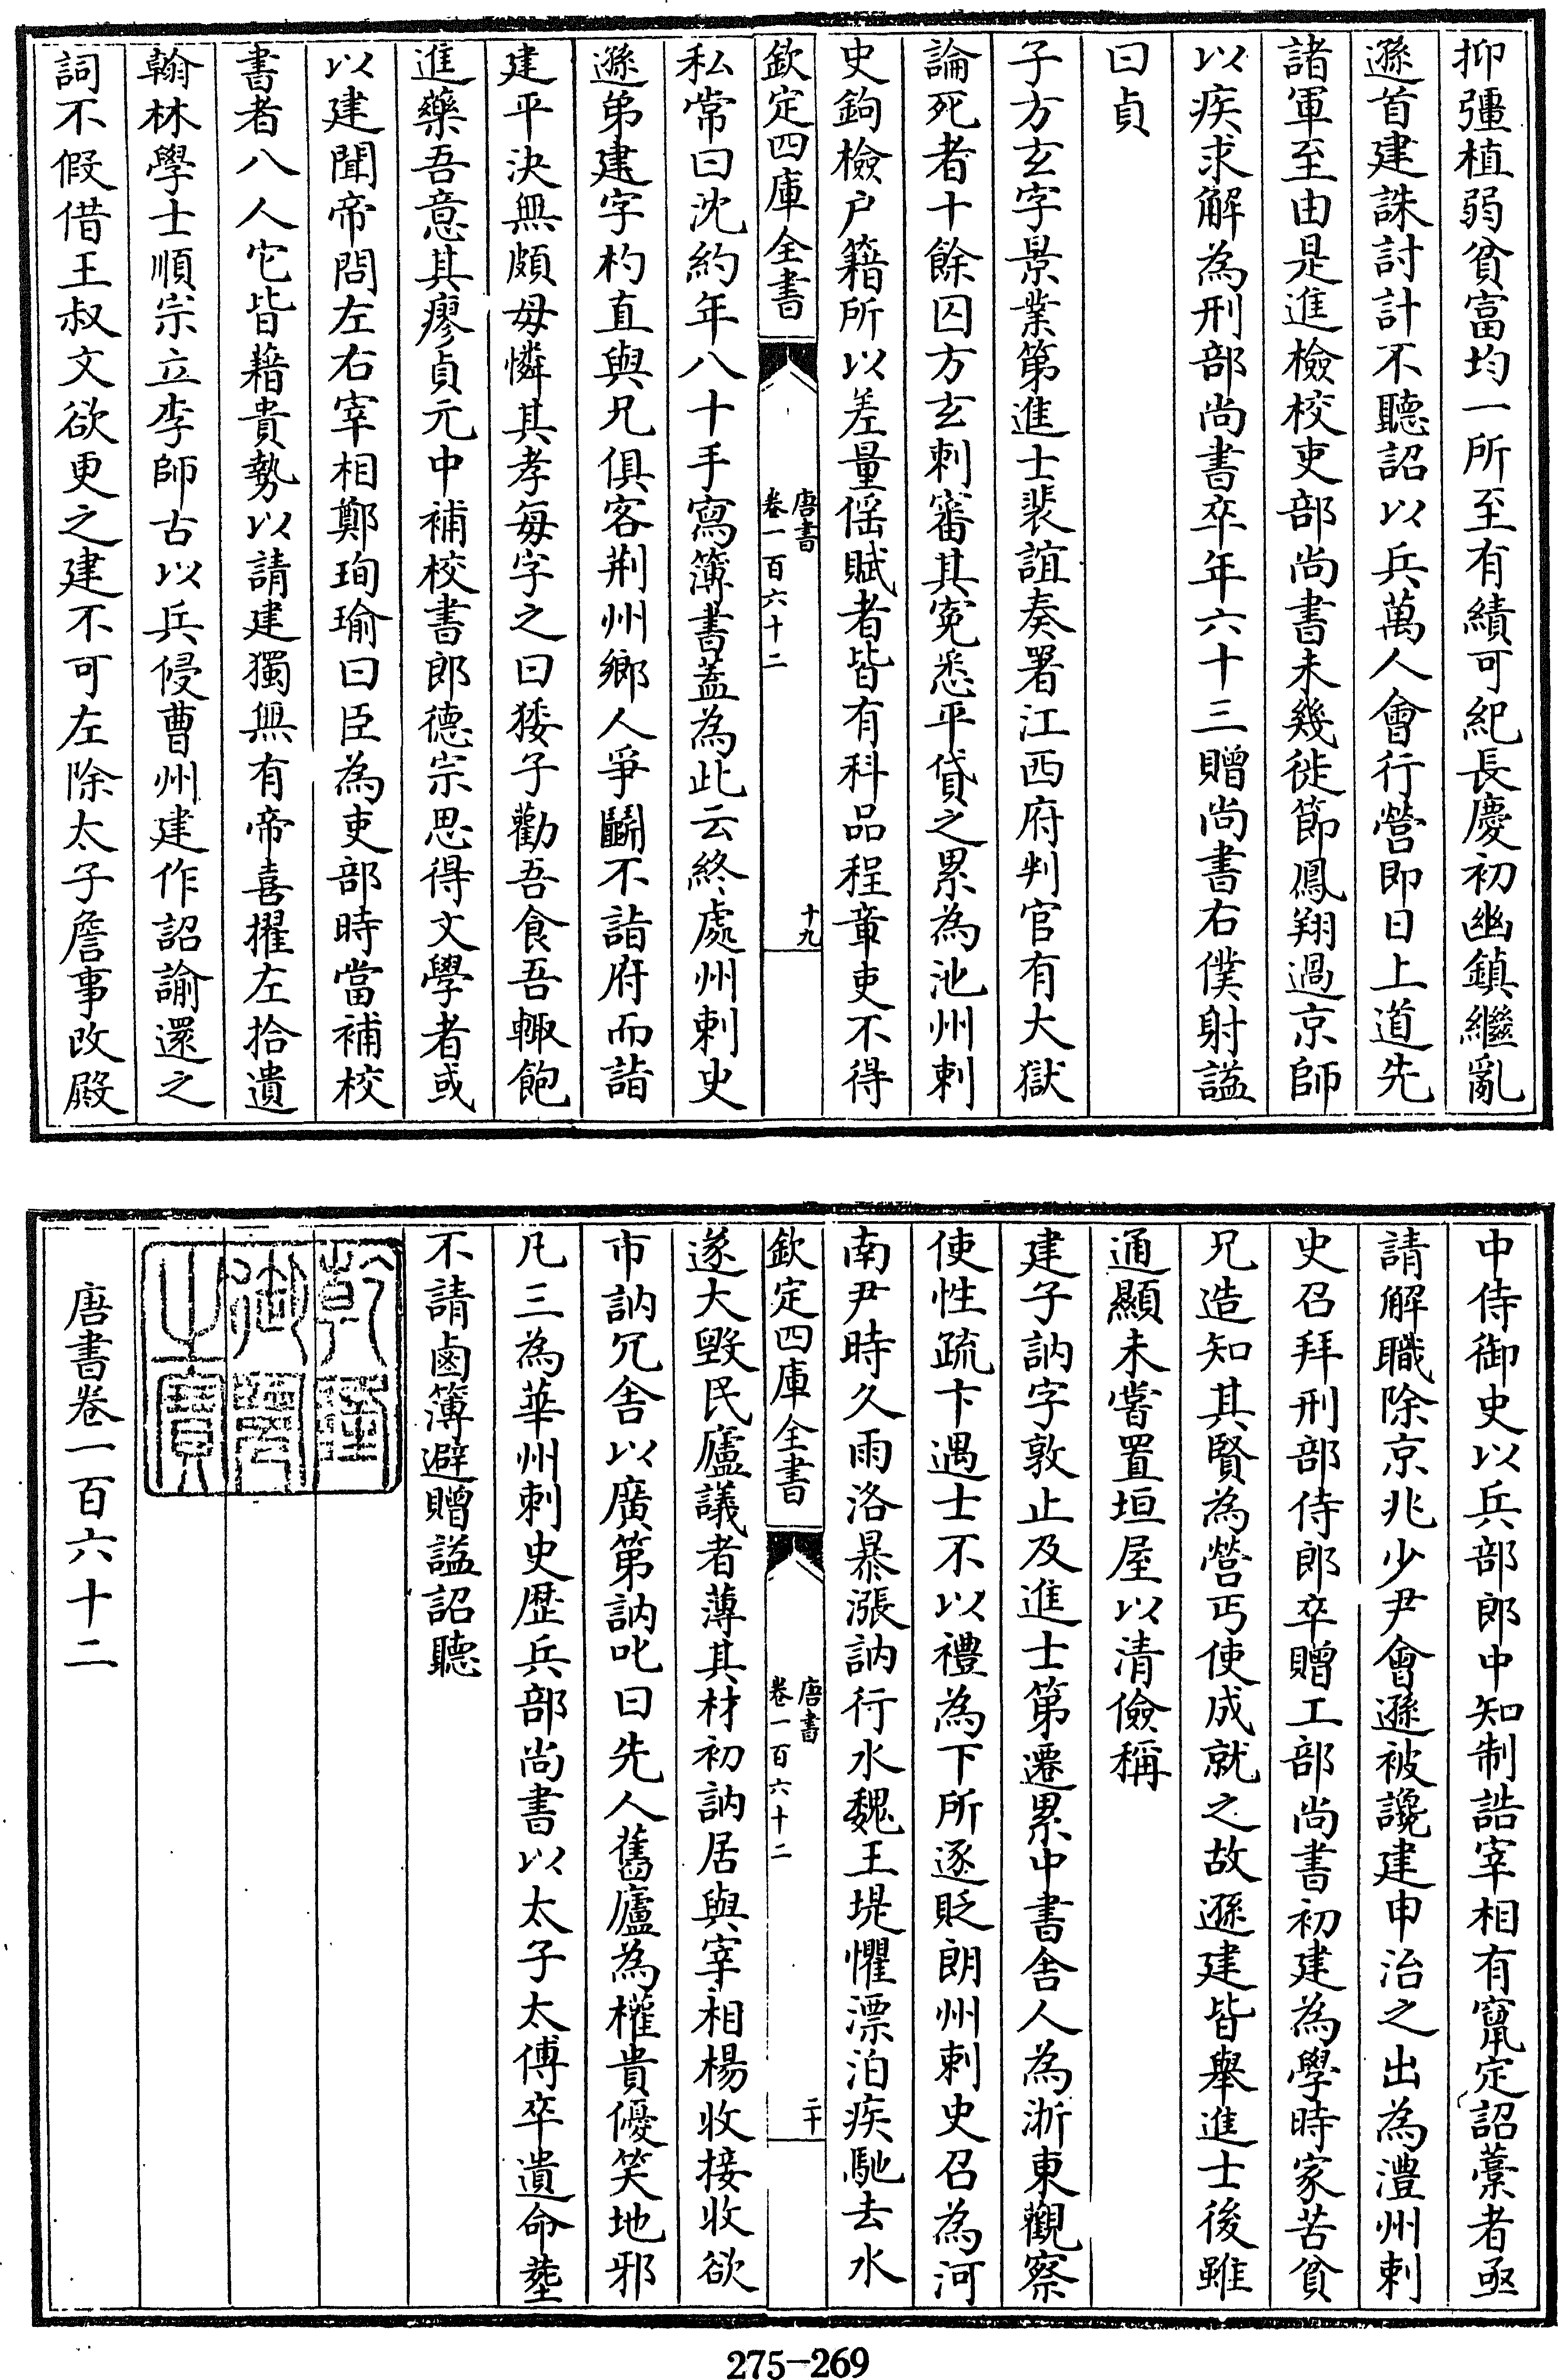 抑彊植弱貧富均一所至有績可紀長慶初幽鎮繼亂
遜首建誅討計不聽詔以兵萬人會行營即日上道先
諸軍至由是進檢校吏部尚書未幾徙節鳳翔過京師
以疾求解為刑部尚書卒年六十三贈尚書右僕射諡
曰貞
子方玄字景業第進士裴誼奏署江西府判官有大獄
論死者十餘囚方玄刺審其寃悉平貸之累為池州刺
史鉤檢户籍所以差量徭賦者皆有科品程章吏不得
欽定四庫全書
唐書
卷一百六十二
十九
私常曰沈約年八十手寫簿書蓋為此云終處州刺史
遜弟建字杓直與兄俱客荆州鄉人爭鬭不詣府而詣
建平決無頗母憐其孝每字之曰㛂子勸吾食吾輒飽
進藥吾意其瘳貞元中補校書郎德宗思得文學者或
以建聞帝問左右宰相鄭珣瑜曰臣為吏部時當補校
書者八人它皆藉貴勢以請建獨無有帝喜擢左拾遺
翰林學士順宗立李師古以兵侵曹州建作詔諭還之
詞不假借王叔文欲更之建不可左除太子詹事改殿
中侍御史以兵部郎中知制誥宰相有竄定詔藁者亟
請解職除京兆少尹會遜被讒建申治之出為澧州刺
史召拜刑部侍郎卒贈工部尚書初建為學時家苦貧
兄造知其賢為營丐使成就之故遜建皆舉進士後雖
通顯未嘗置垣屋以清儉稱
建子訥字敦止及進士第遷累中書舍人為浙東觀察
使性疏卞遇士不以禮為下所逐貶朗州刺史召為河
南尹時久雨洛暴漲訥行水魏王堤懼漂泊疾馳去水
欽定四庫全書
唐書
卷一百六十二
二十
遂大毀民廬議者薄其材初訥居與宰相楊收接收欲
市訥冗舍以廣第訥叱曰先人舊廬為權貴優笑地邪
凡三為華州刺史歷兵部尚書以太子太傅卒遺命塟
不請鹵簿避贈諡詔聽
乾隆
御覽
之寶
唐書卷一百六十二
275-269